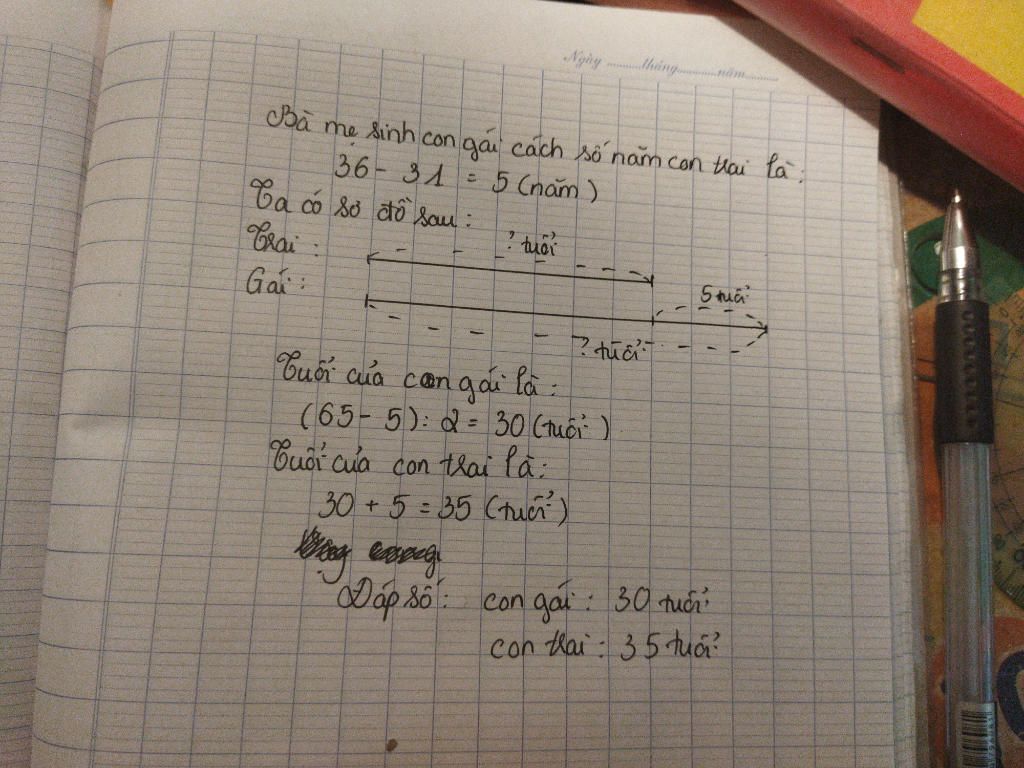 Ngày ..........tháng............năm..........
Bà mẹ sinh con gái cách số năm con trai là:
36 - 31 = 5 (năm)
Ta có sơ đồ sau:
Trai: ? tuổi
Gái: 5 tuổi
? tuổi
Tuổi của con gái là:
(65 - 5) : 2 = 30 (tuổi)
Tuổi của con trai là:
30 + 5 = 35 (tuổi)
Đáp số: con gái: 30 tuổi
con trai: 35 tuổi